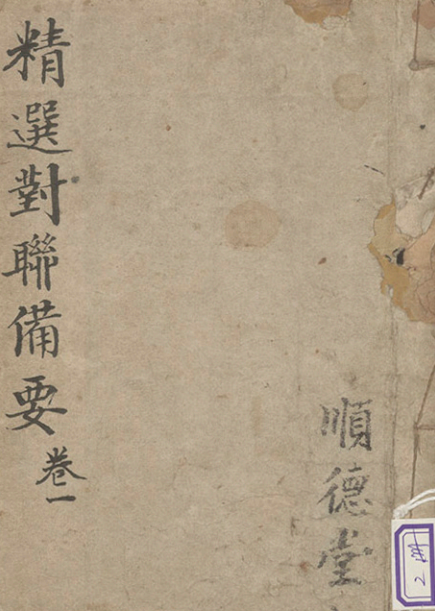 精選對聯備要 卷一
順德堂